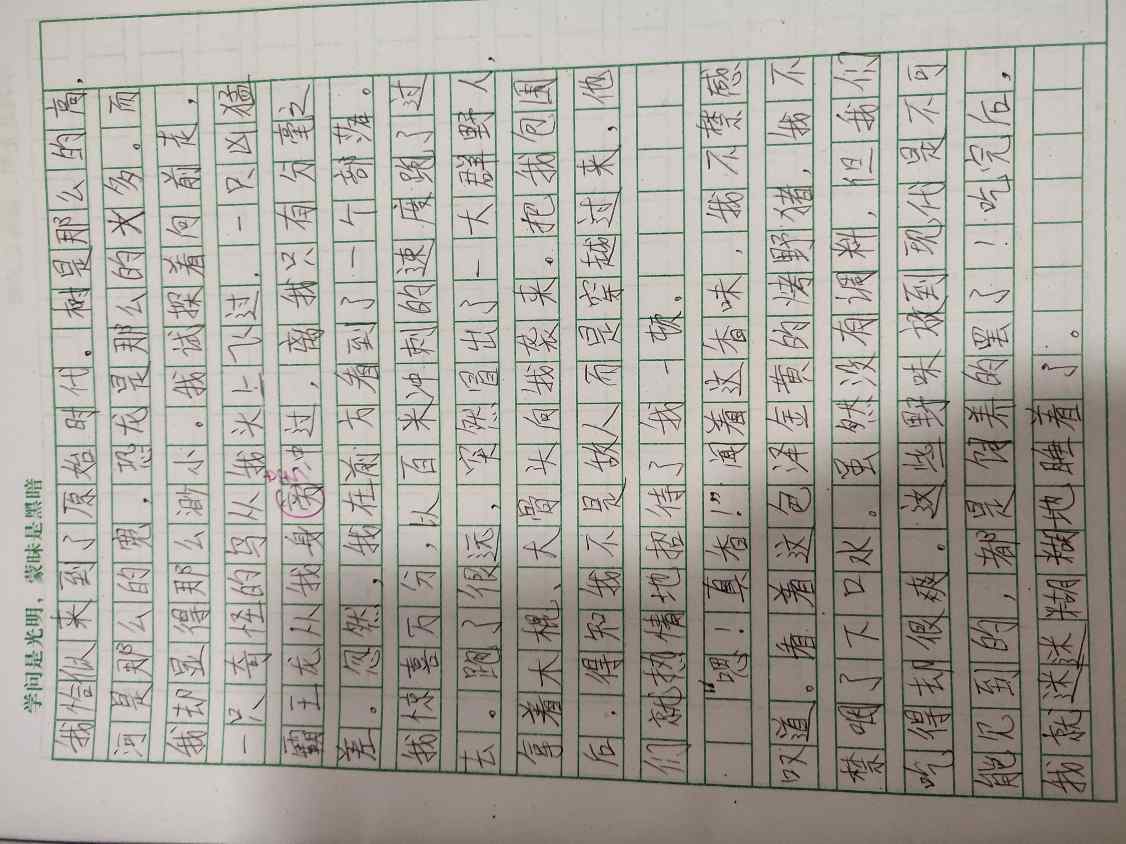 学问是光明，蒙昧是黑暗
我恰似来到了原始时代。树是那么的高，
河是那么的宽，恐龙是那么的水多。而
我却显得那么渺小。我试探着向前走，
一只奇怪的鸟从我头上飞过，一只凶猛
霸王龙从我身旁冲过，离我只有分毫之
差。忽然，我在前方看到了一个部落。
我惊喜万分，以百米冲刺的速度跑了过
去。跑了很远，突然冒出了一大群野人，
拿着木棍、大骨头向我袭来。把我包围
后，得知我不是敌人而是穿越过来，他
们就热情地招待了我一顿。
“嗯！真香！”闻着这香味，我不禁感
叹道。看着这色泽金黄的烤野猪，我不
禁咽了下口水。虽然没有调料，但我们
吃得却很爽。这些野味放到现代是不可
能见到的，都是饲养的罢了！吃完后，
我就迷迷糊糊地睡着了。